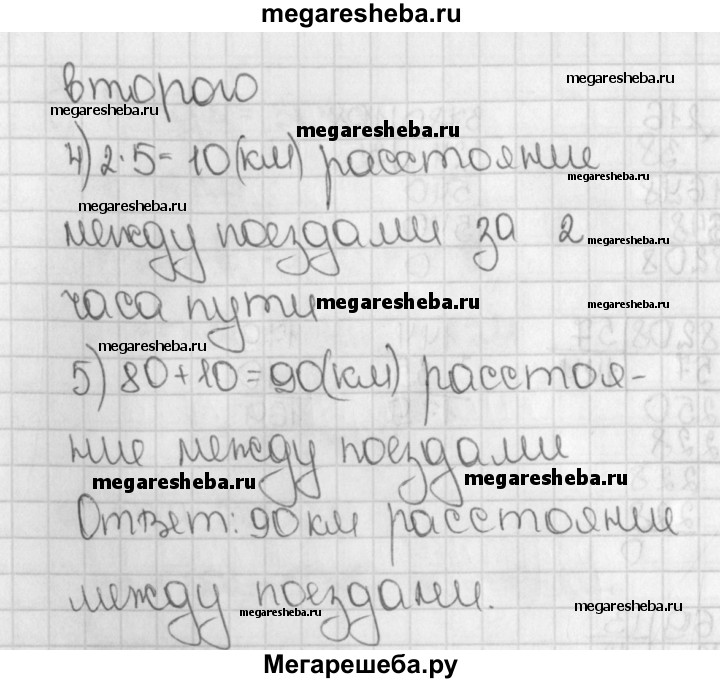 megaresheba.ru
второго
megaresheba.ru
megaresheba.ru
megaresheba.ru
4) 2·5=10(км) расстояние
megaresheba.ru
megaresheba.ru
между поездами за 2
megaresheba.ru
часа пути
megaresheba.ru
megaresheba.ru
megaresheba.ru
5) 80+10=90(км) расстоя-
ние между поездами
megaresheba.ru
megaresheba.ru
Ответ: 90 км расстояние
между поездами.
megaresheba.ru
megaresheba.ru
Мегарешеба.ру